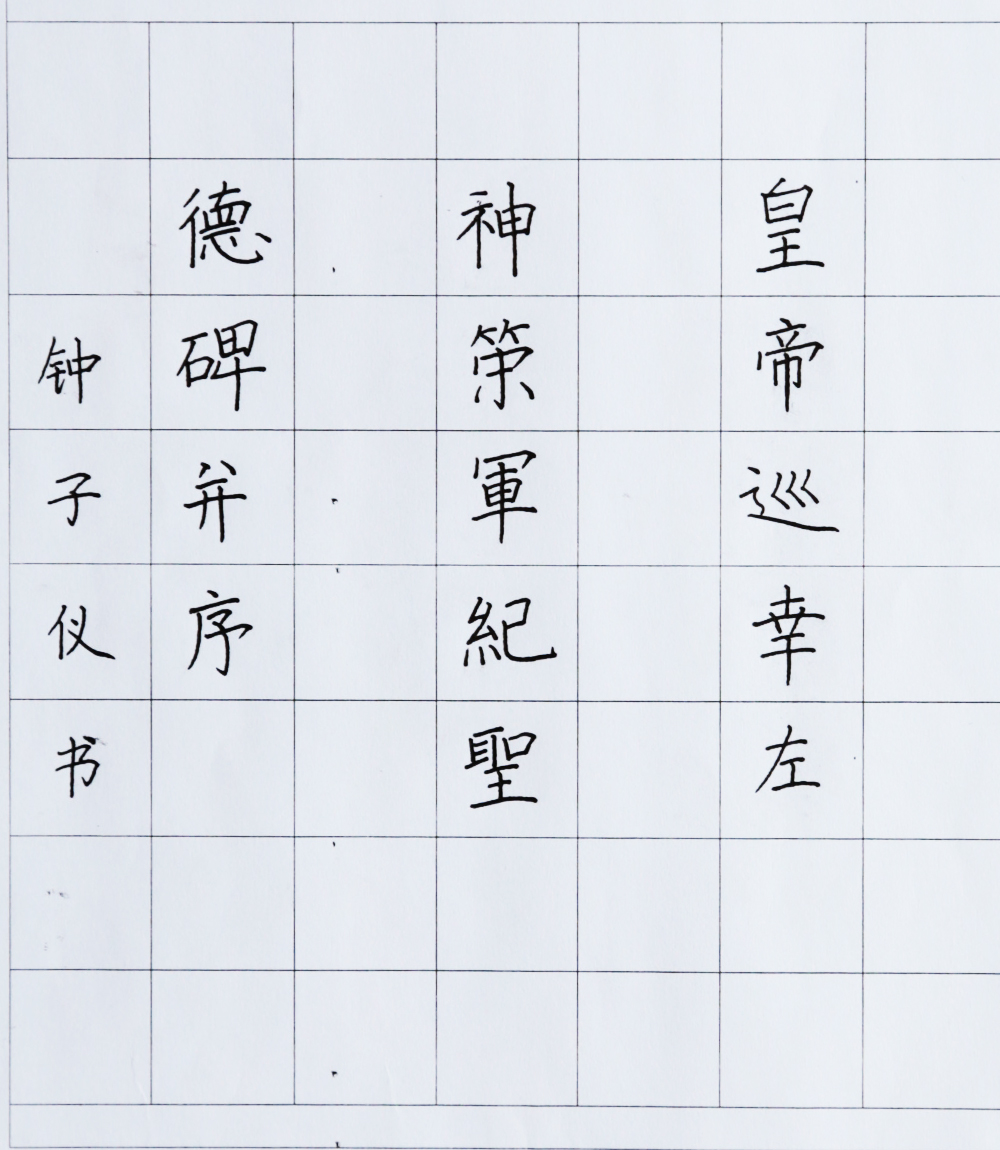 皇帝巡幸左
神策軍紀聖
德碑并序
钟子仪书